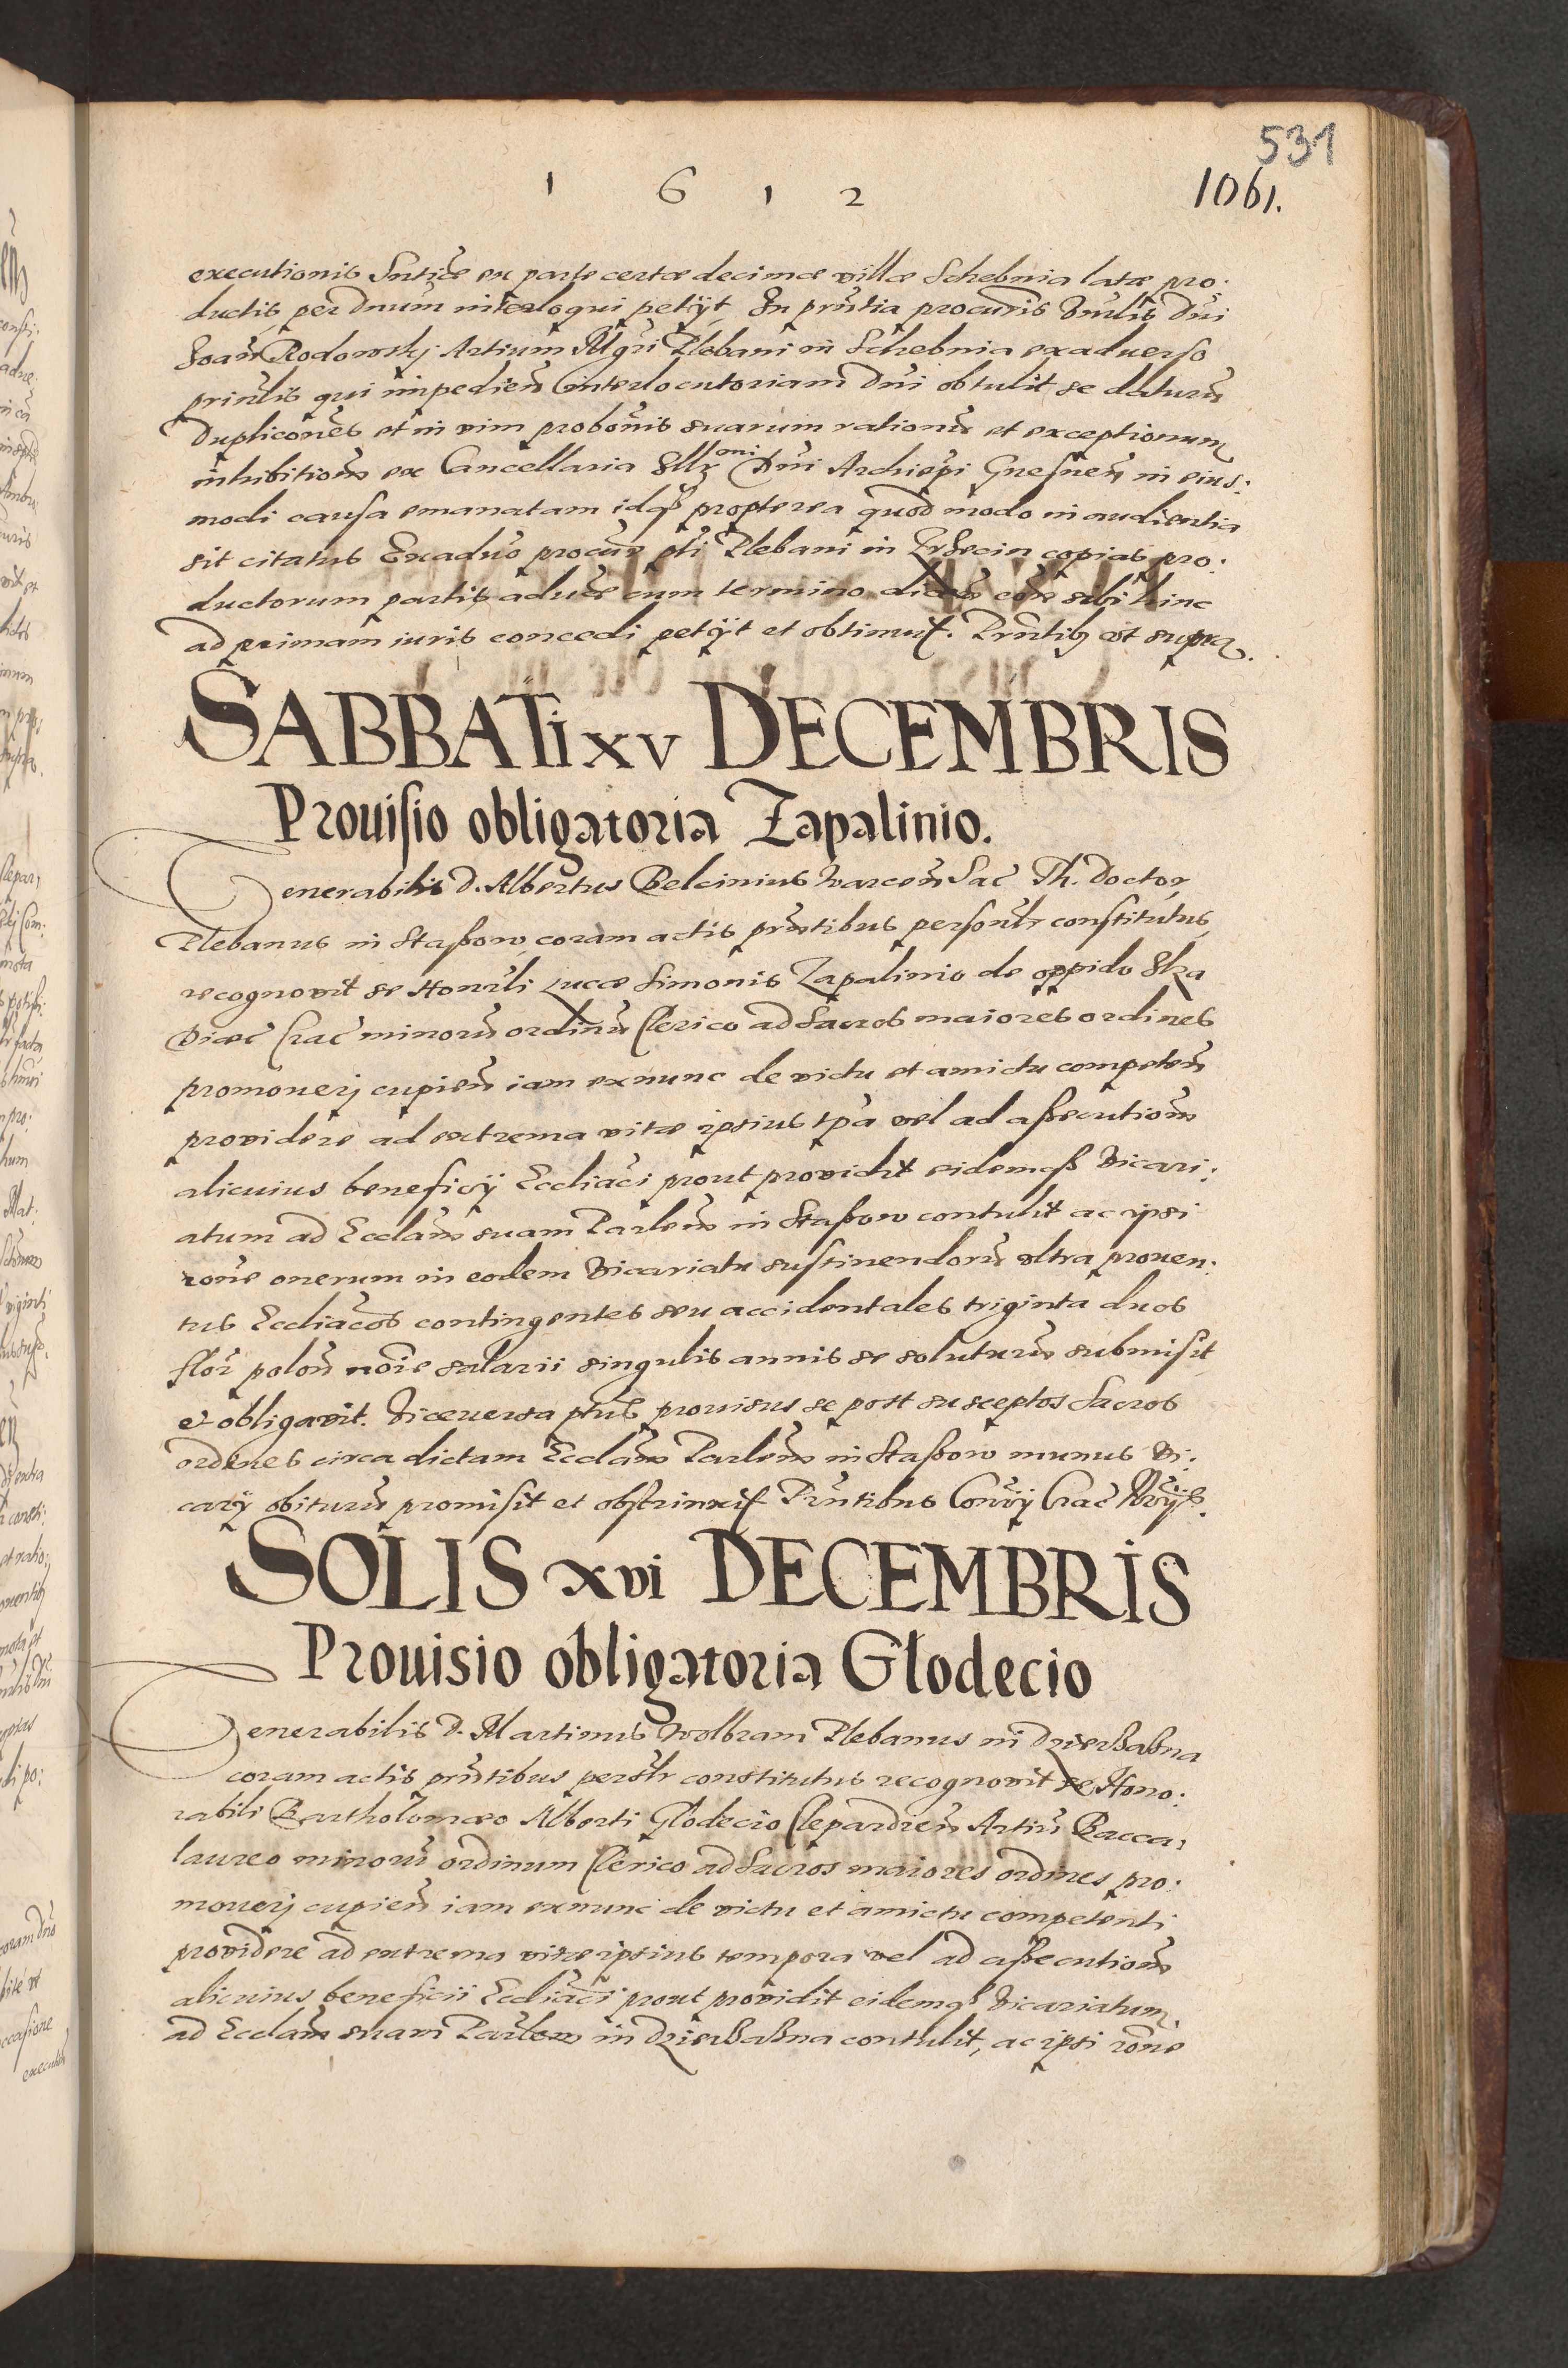 531
1 6 1 2
1061.
executionis Sntiæ ex parte certæ decimæ villæ Schebnia latæ pro:
ductis, per Dnum interloqui petijt, In pruntia procuris Dni
Joan Rodowskj Artium Mgri Plebani in Schebnia exaduerso
prinlis qui impedien interlocutoriam Dni obtulit se daturu
Duplicones et in vim probonis suarum rationu et exceptionum
inhibitiom ex Cancellaria Dni Archiepi Gnesnen in eius:
modi causa emanatam idq propterea quod modo in audientia
sit citatus Exaduo procur pti Plebani in copias pro:
ductorum partis aduers cum termino dicen con sibi hinc
ad primam iuris concedi petijt et obtinuit. Prntib vt supra.
SABBATi xv DECEMBRIS
Prouisio obligatoria Zapalinio.
Venerabilis D. Albertus Belcinius Sac Th. Doctor,
Plebanus in Staßow, coram actis prntibus personlr constitutus,
recognovit se Honrli Lucæ Simonis Zapalinio de oppido Ilza
Diæc Crac minoru ordinu Clerico ad Sacros maiores ordines
promouerj cupien iam exnunc de victu et amictu competen
providere ad extrema vitæ ipsius tpa vel ad aßecutiom
alicuius beneficij Eccliaci prout providit eidemq Vicari:
atum ad Ecclam suam Parlem in Staßow contulit ac ipsi
rone onerum in eodem Vicariatu sustinendoru vltra prouen:
tus Eccliacos contingentes seu accidentales triginta duos
flor polon noie salarii singulis annis se soluturu submisit
et obligavit. Viceuersa ptus prouisus se post susceptos Sacros
ordines circa dictam Ecclam Parlem in Staßow munus Vi:
carij obituru promisit et obstrinxit Prntibus Crac
SOLIS xvi DECEMBRIS
Prouisio obligatoria Glodecio
Venerabilis D. Martinus Wolbram Plebanus in Dzierßaßna
coram actis prntibus persolr constitutus recognovit se Hono:
rabili Bartholomæo Alberti Glodecio Clepardien Artiu Bacca,
laureo minoru ordinum Clerico ad Sacros maiores ordines pro:
mouerj cupien iam exnunc de victu et amictu competenti
providere ad extrema vitæ ipsius tempora vel ad aßecutiom
alicuius beneficii Eccliaci prout providit eidemq Vicariatum
ad Ecclam suam Parlem in Dzierßaßna contulit, ac ipsi rone